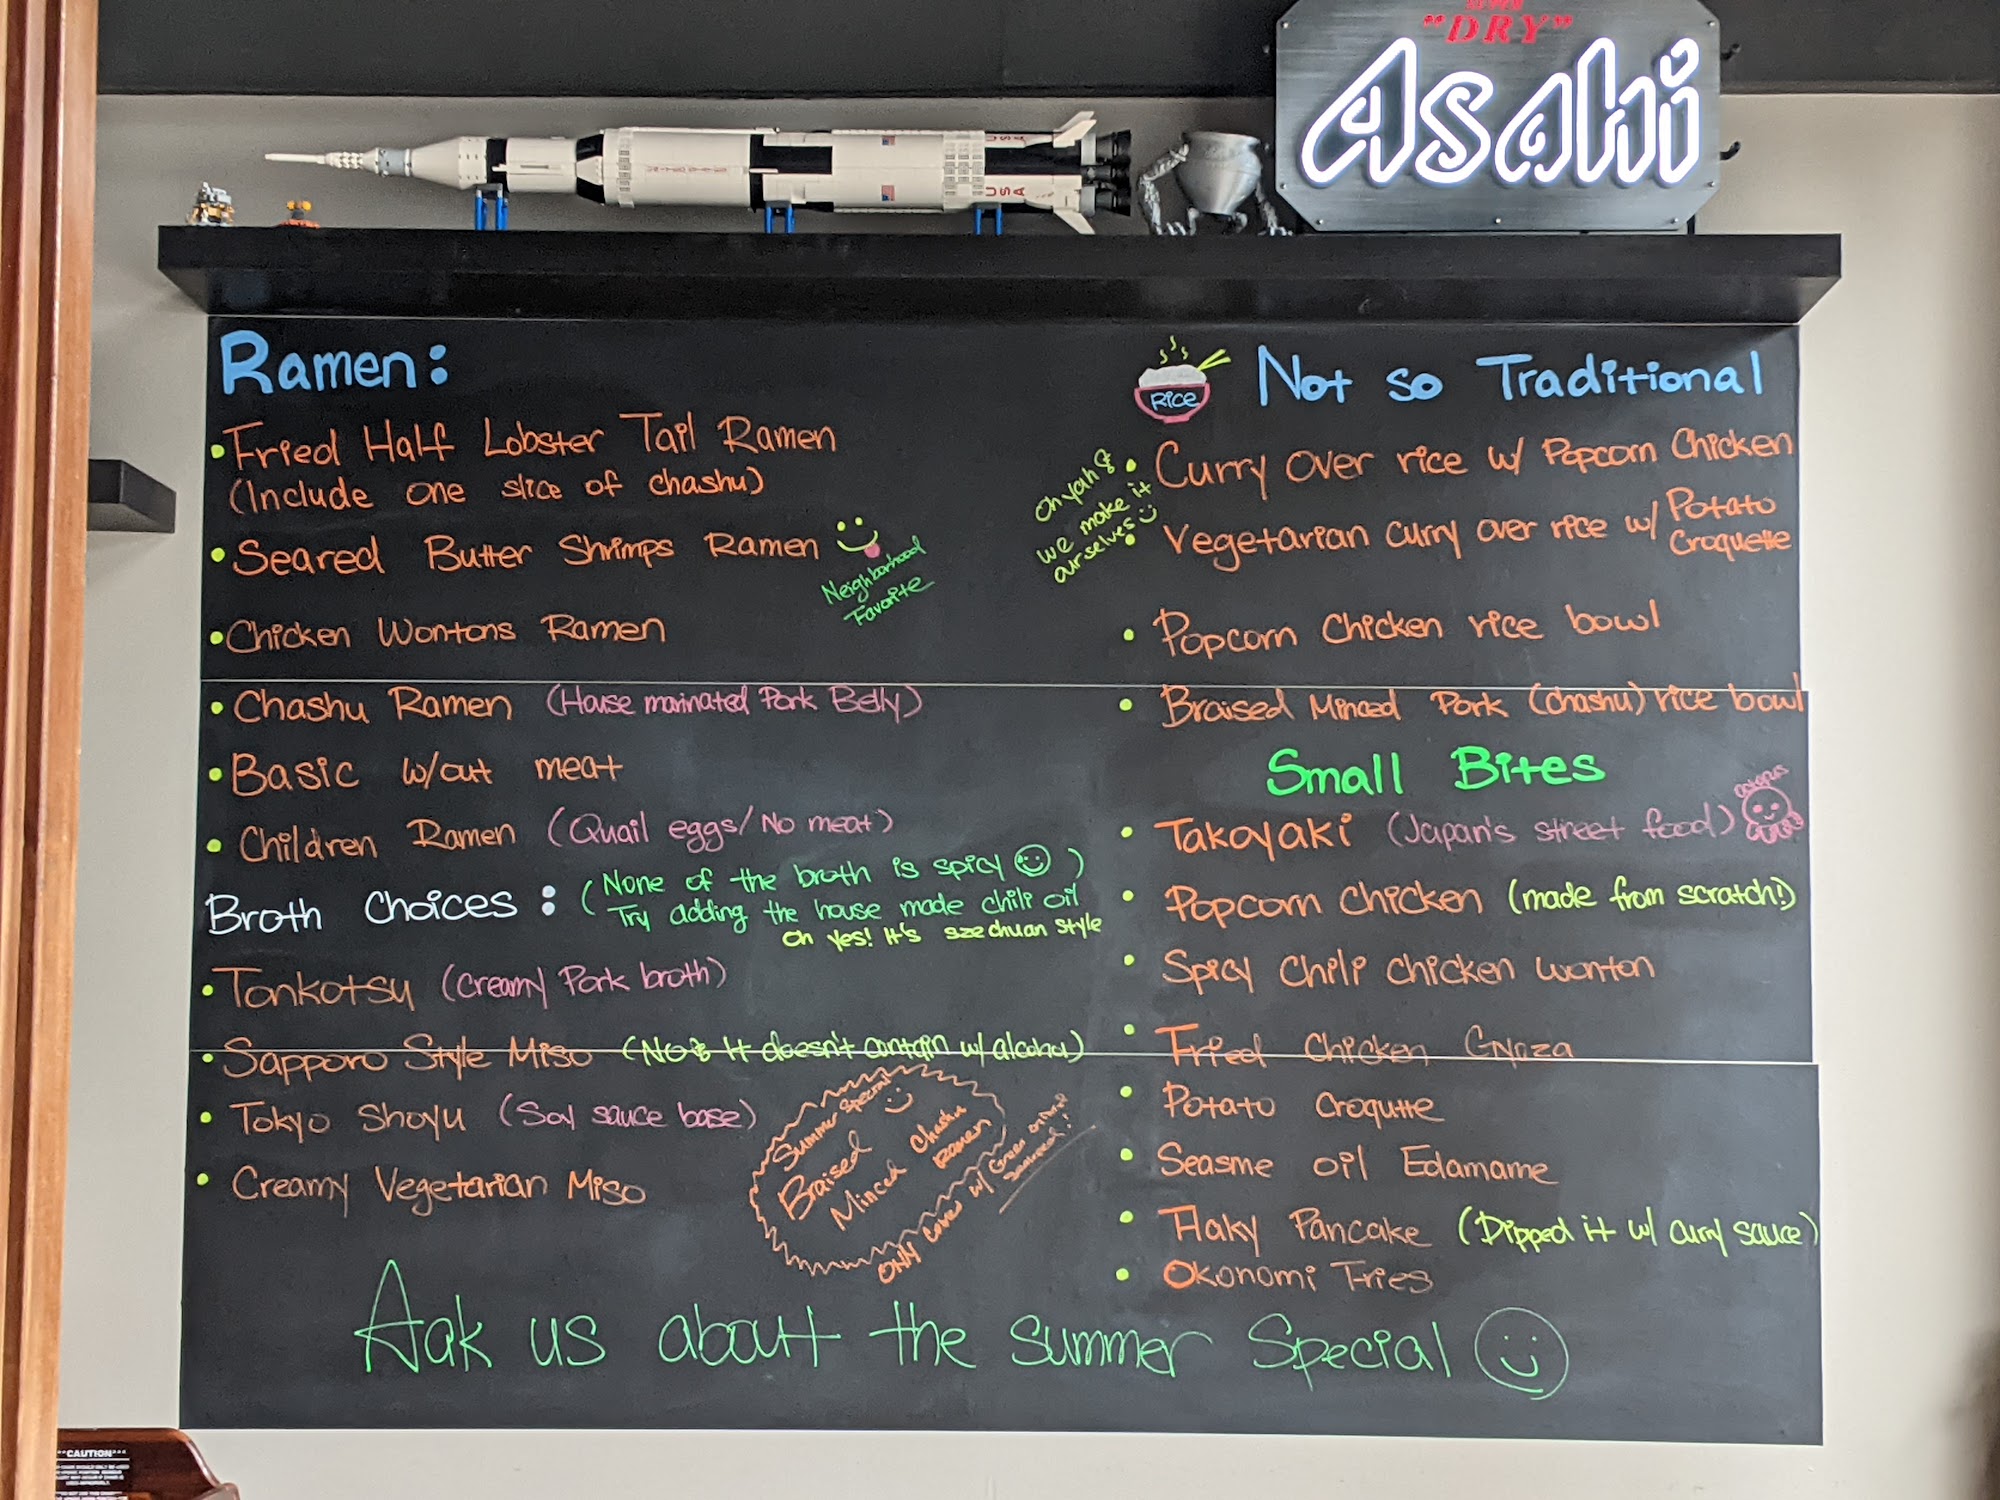 "DRY"
Asahi
USA
Ramen:
• Fried Half Lobster Tail Ramen
(Include one slice of chashu)
• Seared Butter Shrimps Ramen
Neighborhood
Favorite
• Chicken Wontons Ramen
• Chashu Ramen (House marinated Pork Belly)
• Basic w/out meat
• Children Ramen (Quail eggs/No meat)
Broth Choices: (None of the broth is spicy )
Try adding the house made chili oil
Oh yes! It's szechuan style
• Tonkotsu (Creamy Pork broth)
• Sapporo Style Miso (No! It doesn't contain w/ alcohol)
• Tokyo Shoyu (Soy sauce base)
• Creamy Vegetarian Miso
Summer Special
Braised
Minced Chashu
Ramen
Only comes w/ Green
Rice
Not so Traditional
Oh yah!
we make it
ourselves
• Curry over rice w/ Popcorn Chicken
• Vegetarian curry over rice w/ Potato
Croquette
• Popcorn Chicken rice bowl
• Braised Minced Pork (chashu) rice bowl
Small Bites
• Takoyaki (Japan's street food)
octopus
• Popcorn Chicken (made from scratch!)
• Spicy Chili Chicken wonton
• Fried Chicken Gyoza
• Potato Croqutte
• Seasme oil Edamame
• Flaky Pancake (Dipped it w/ curry sauce)
• Okonomi Fries
Aak us about the summer Special
**CAUTION**